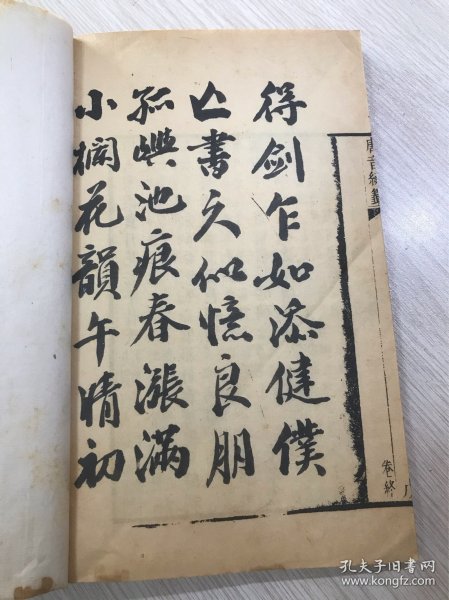 得劍乍如添健僕
亡書久似憶良朋
孤嶼池痕春漲滿
小欄花韻午晴初
卷終
孔夫子旧书网
www.kongfz.com